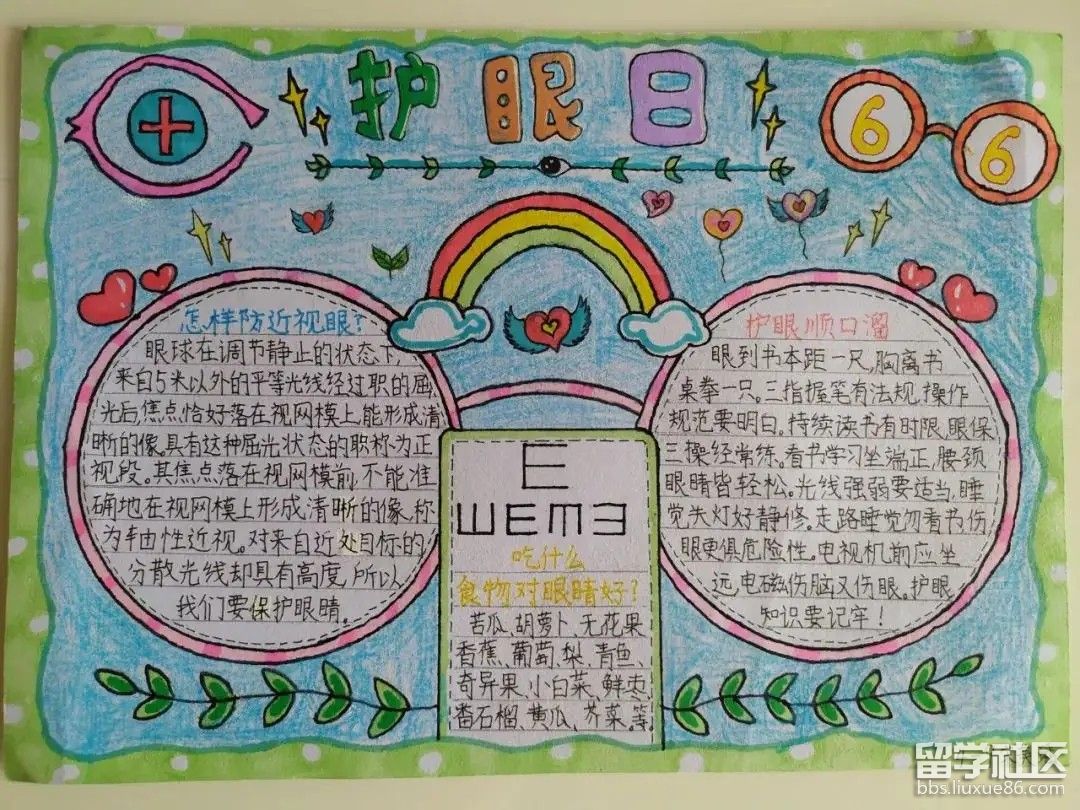 护眼日
6 6
怎样防近视眼?
眼球在调节静止的状态下,
来自5米以外的平等光线经过职的屈
光后,焦点恰好落在视网模上,能形成清
晰的像。具有这种屈光状态的职称为正
视段。其焦点落在视网模前,不能准
确地在视网模上形成清晰的像,称
为由性近视。对来自近处目标的
分散光线却具有高度,所以
我们要保护眼睛。
E
ШEmƎ
吃什么
食物对眼睛好?
苦瓜、胡萝卜、无花果
香蕉、葡萄、梨、青鱼、
奇异果、小白菜、鲜枣、
番石榴、黄瓜、芥菜、等
护眼顺口溜
眼到书本距一尺,胸离书
桌拳一只。三指握笔有法规,操作
规范要明白。持续读书有时限,眼保
三操经常练。看书学习坐端正,腰颈
眼睛皆轻松。光线强弱要适当,睡
觉失灯好静修。走路睡觉勿看书伤
眼更俱危险性。电视机前应坐
远,电磁伤脑又伤眼。护眼
知识要记牢!
留学社区
bbs.liuxue86.com